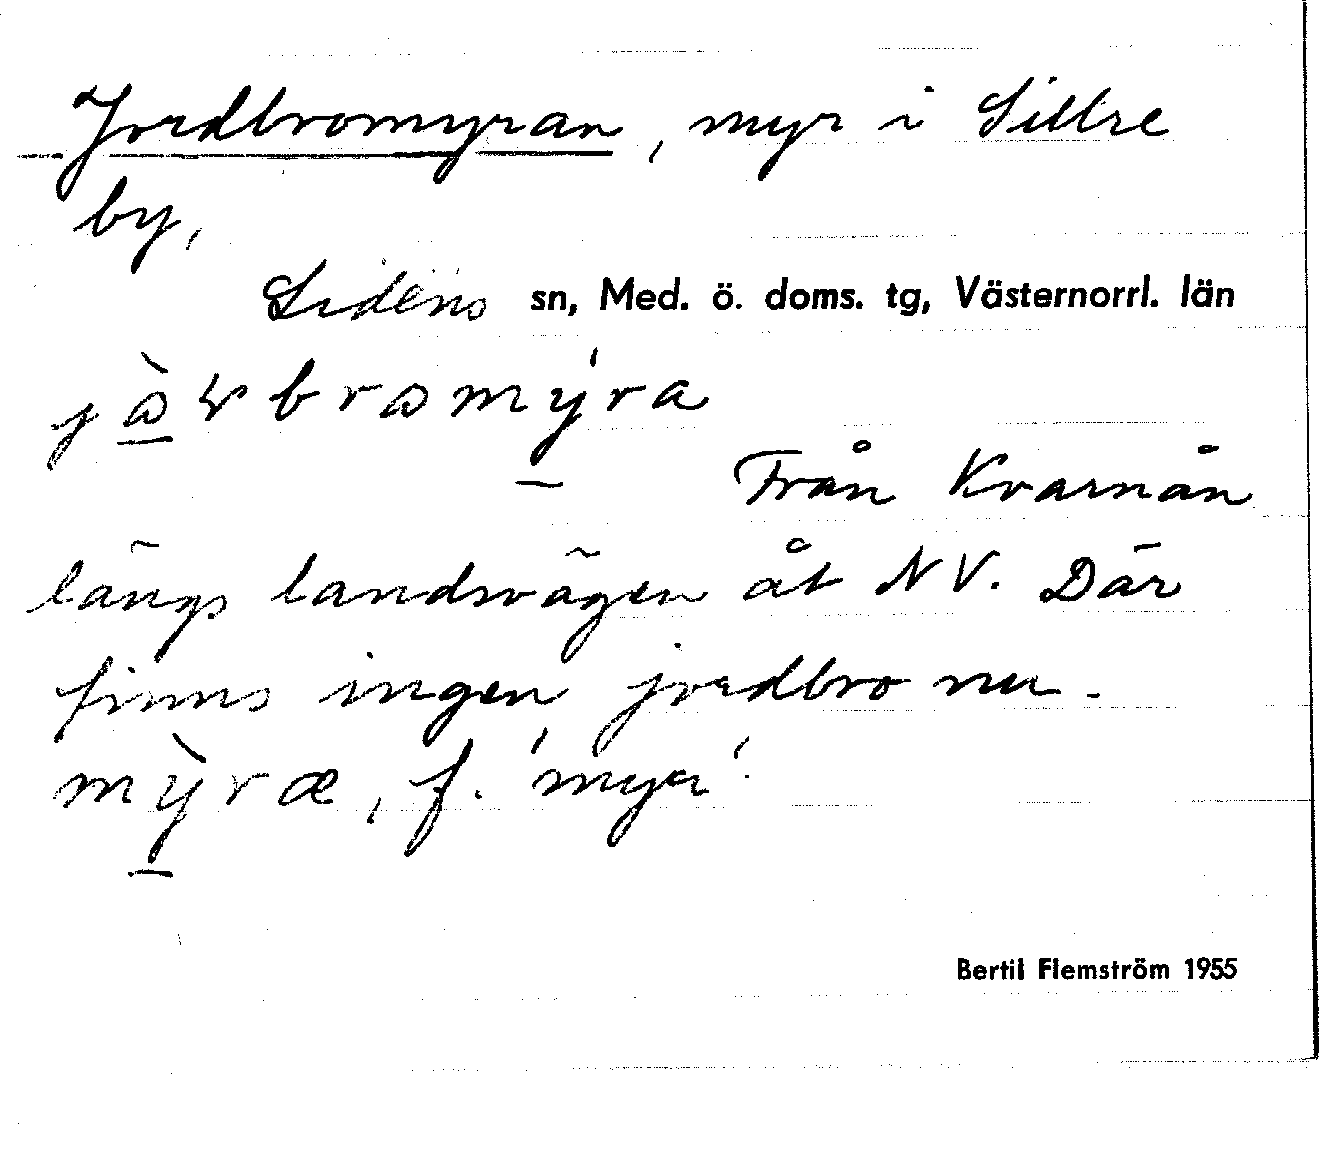 Jordbromyran, myr i Sillre
by,
Lidens sn, Med. ö. doms. tg, Västernorrl. län
Från Kvarnån
längs landsvägen åt NV. Där
finns ingen jordbro nu.
mỳ̠ræ, f. 'myr'.
Bertil Flemström 1955